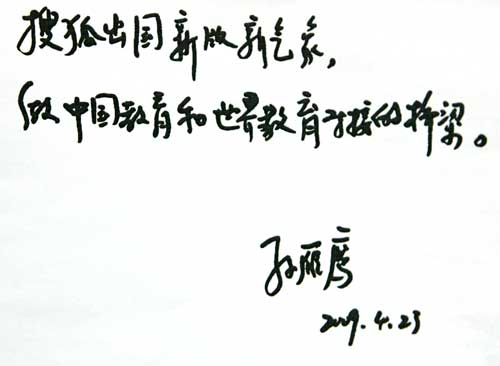 搜狐出国新版新气象,
做中国教育和世界教育对接的桥梁。
孙雁鹰
2009.4.23